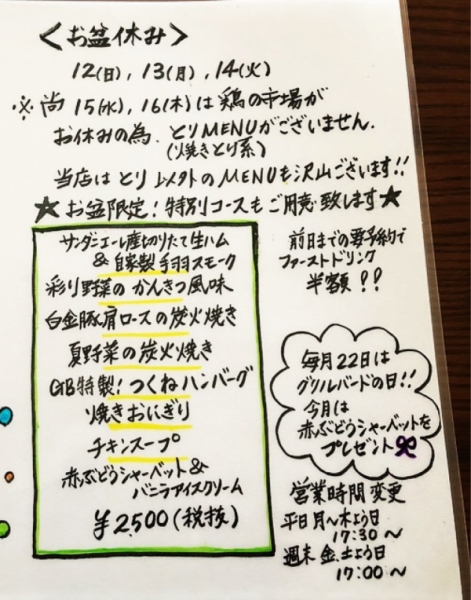 <お盆休み>
12(日), 13(月), 14(火)
※尚 15(水), 16(木)は 鶏の市場が
お休みの為、とりMENUがございません.
(焼きとり系)
当店は とり以外のMENUも沢山ございます!!
★お盆限定!特別コースもご用意致します★
サンダニエーレ産切りたて生ハム
& 自家製 手羽スモーク
彩り野菜の かんきつ風味
白金豚肩ロースの炭火焼き
夏野菜の炭火焼き
GB特製!つくねハンバーグ
焼きおにぎり
チキンスープ
赤ぶどうシャーベット&
バニラアイスクリーム
¥2,500(税抜)
前日までの要予約で
ファーストドリンク
半額!?
毎月22日は
グリルバードの日!!
今月は
赤ぶどうシャーベットを
プレゼント
営業時間 変更
平日 月〜木よう日
17:30〜
週末 金、土よう日
17:00〜